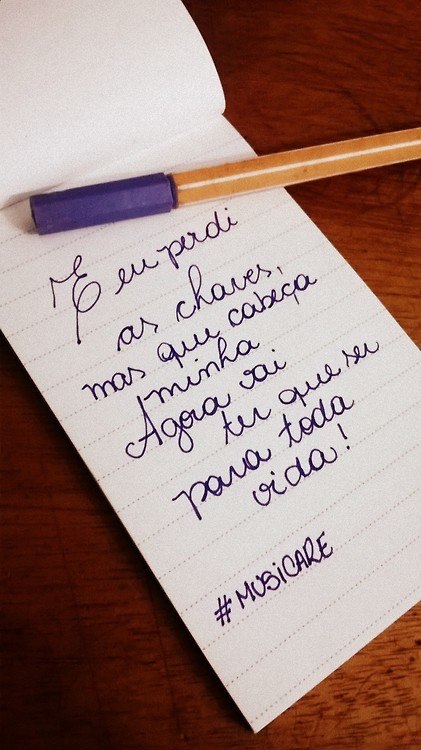 E eu perdi
as chaves,
mas que cabeça
minha
Agora vai
ter que ser
para toda
vida!
#MUSICARE